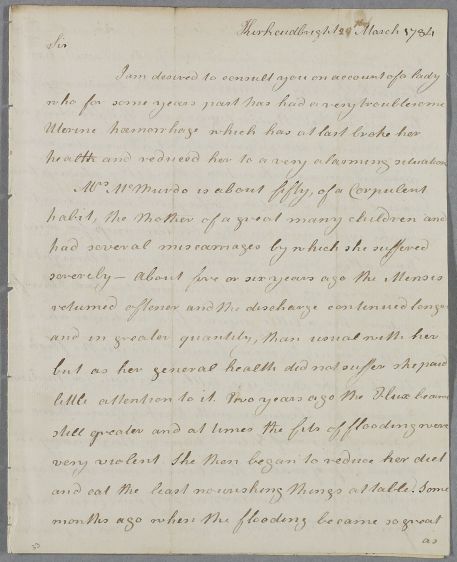 Kirkcudbright 29th March 1784
Sir
I am desired to consult you on account of a lady
who for some years past has had a very troublesome
Uterine hæmorrhage which has at last broke her
health and reduced her to a very alarming situation
Mrs McMurdo is about fifty, of a Corpulent
habit, the Mother of a great many children and
had several miscarriages by which she suffered
severely – About five or six years ago the Menses
returned oftener and the discharge continued longer
and in greater quantity, than usual with her
but as her general health did not suffer she paid
little attention to it. Two years ago the Flux became
still greater and at times the fits of flooding were
very violent She then began to reduce her diet
and eat the least nourishing things at table. Some
months ago when the flooding became so great
as